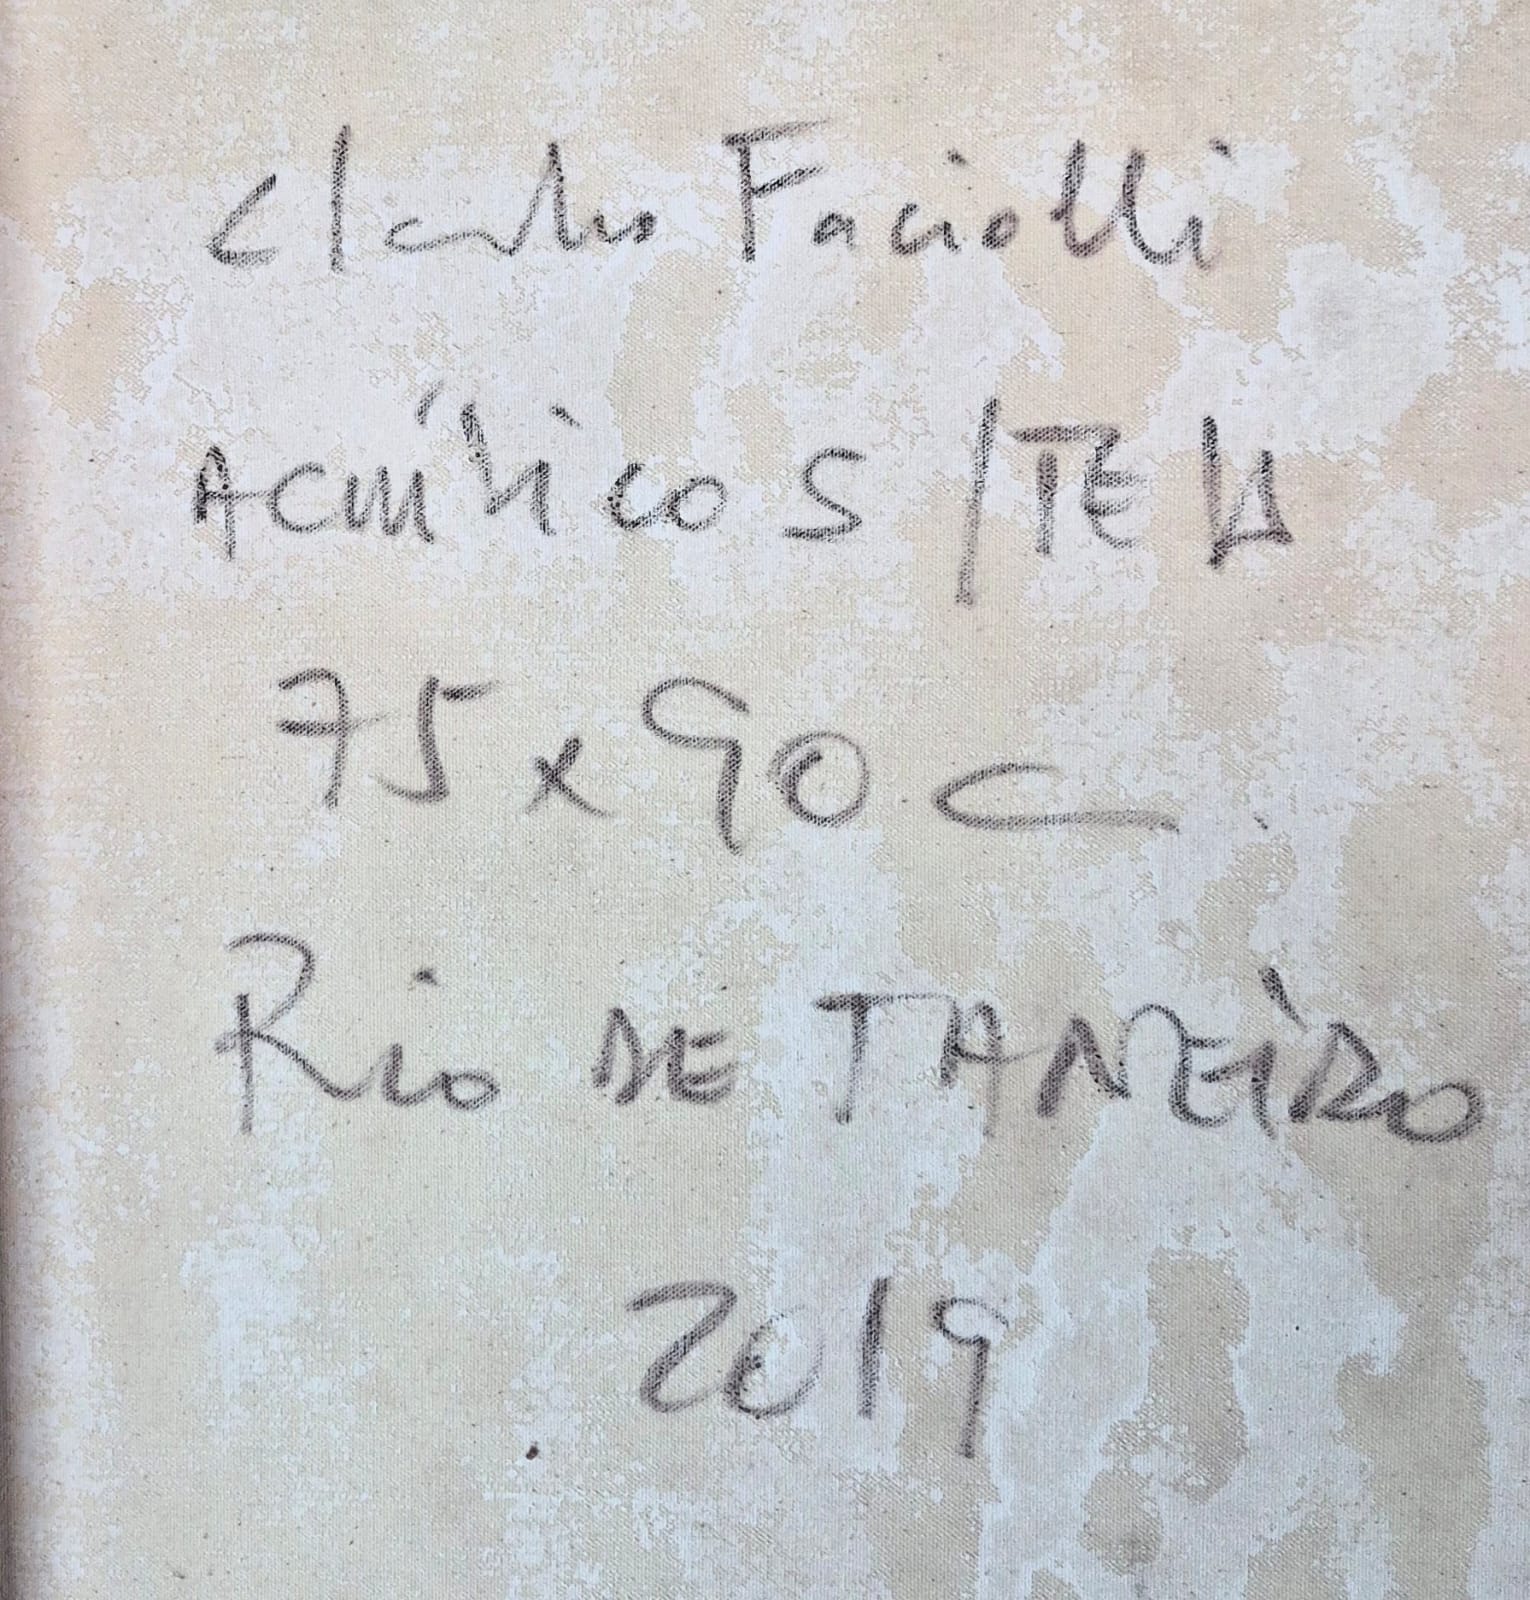 Claudio Faciolli
ACRÍLICO S/TELA
75 x 90 c
Rio DE JANEIRO
2019